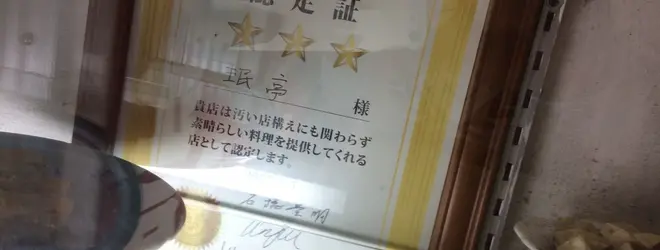 認定証
珉亭 様
貴店は汚い店構えにも関わらず
素晴らしい料理を提供してくれる
店として認定します。